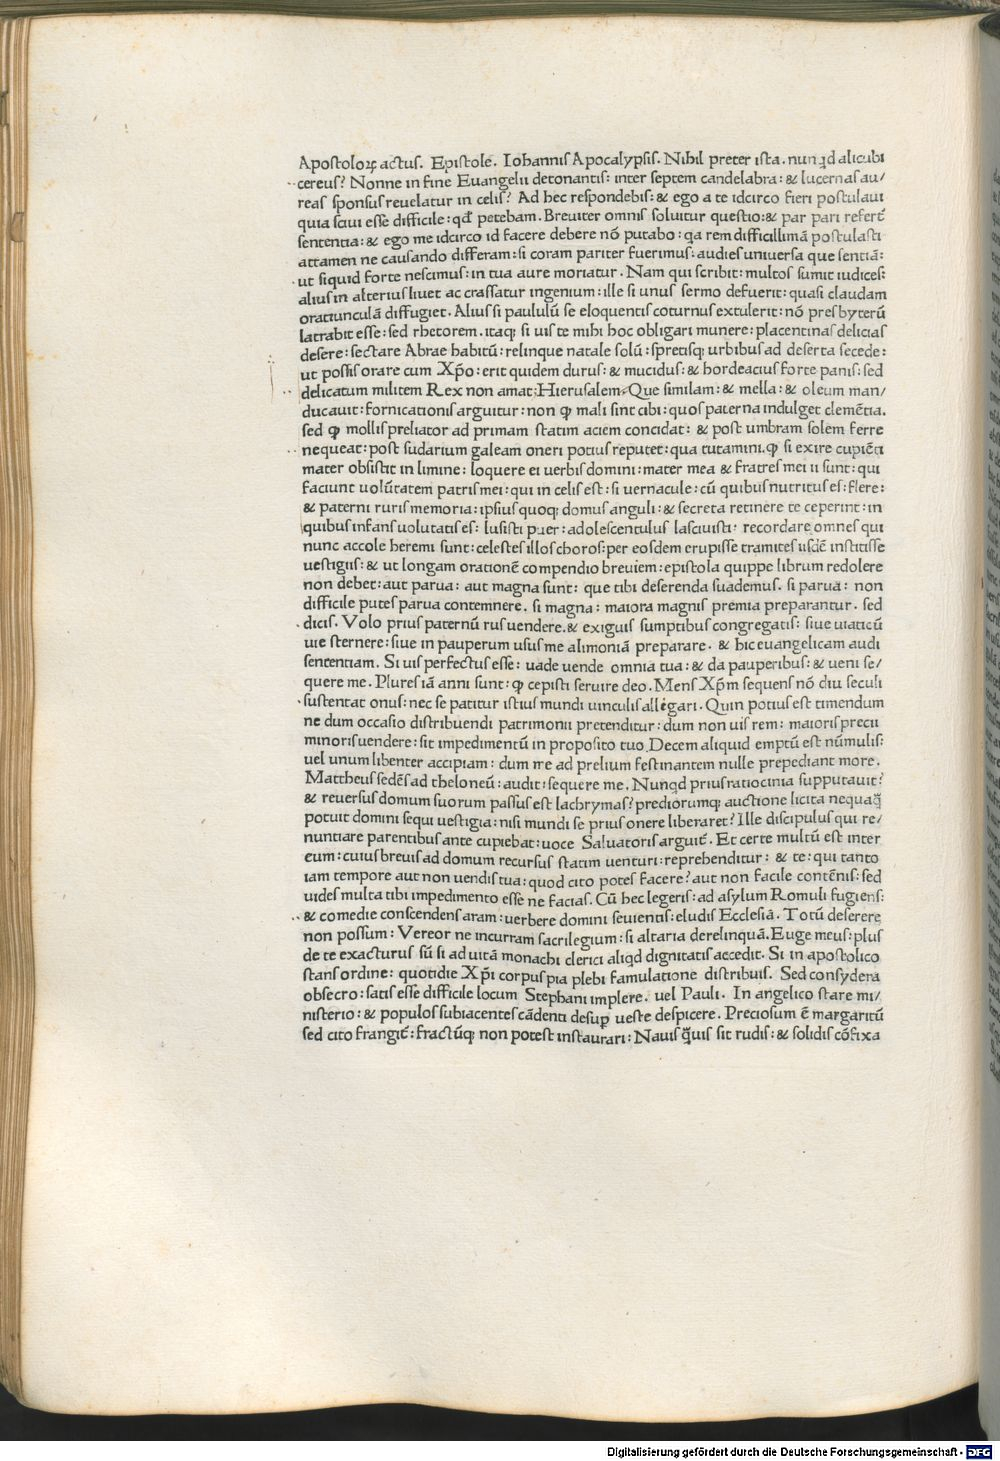 Apostoloꝝ actus. Epistole. Iohannis Apocalypsis. Nihil preter ista. nunqd alicubi
cereus? Nonne in fine Euangelii detonantis: inter septem candelabra: & lucernas au/
reas sponsus reuelatur in celis? Ad hec respondebis: & ego a te idcirco fieri postulaui
quia sciui esse difficile: qđ petebam. Breuiter omnis soluitur questio: & par pari referet̄
sententia: & ego me idcirco id facere debere nō putabo: qa rem difficillimā postulasti
attamen ne causando differam: si coram pariter fuerimus: audies uniuersa que sentiā:
ut siquid forte nescimus: in tua aure moriatur. Nam qui scribit: multos sumit iudices:
alius in alterius liuet ac crassatur ingenium: ille si unus sermo defuerit: quasi claudam
oratiunculā diffugiet. Alius si paululū se eloquentis coturnus extulerit: nō presbyterū
latrabit esse: sed rhetorem. itaq; si uis te mihi hoc obligari munere: placentinas delicias
desere: sectare Abrae habitū: relinque natale solū: spretisq; urbibus ad deserta secede:
ut possis orare cum Xp̄o: erit quidem durus: & mucidus: & hordeacius forte panis: sed
delicatum militem Rex non amat Hierusalem. Que similam: & mella: & oleum man/
ducauit: fornicationis arguitur: non ꝙ mali sint cibi: quos paterna indulget clemētia.
sed ꝙ mollis preliator ad primam statim aciem concidat: & post umbram solem ferre
nequeat: post sudarium galeam oneri potius reputet: qua tutamini. ꝙ si exire cupiēti
mater obsistit in limine: loquere ei uerbis domini: mater mea & fratres mei ii sunt: qui
faciunt uolūtatem patris mei: qui in celis est: si uernacule: cū quibus nutritus es: flere:
& paterni ruris memoria: ipsius quoq; domus anguli: & secreta retinere te ceperint: in
quibus infans uolutatis es: lusisti puer: adolescentulus lasciuisti: recordare omnes qui
nunc accole heremi sunt: celestes illos choros: per eosdem erupisse tramites iisdē institisse
uestigiis: & ut longam orationē compendio breuiem: epistola quippe librum redolere
non debet: aut parua: aut magna sunt: que tibi deserenda suademus. si parua: non
difficile putes parua contemnere. si magna: maiora magnis premia preparantur. sed
dicis. Volo prius paternū rus uendere. & exiguis sumptibus congregatis: siue uiaticū
uie sternere: siue in pauperum usus me alimoniā preparare. & hic euangelicam audi
sententiam. Si uis perfectus esse: uade uende omnia tua: & da pauperibus: & ueni se/
quere me. Plures iā anni sunt: ꝙ cepisti seruire deo. Mens Xp̄m sequens nō diu seculi
sustentat onus: nec se patitur istius mundi uinculis allegari. Quin potius est timendum
ne dum occasio distribuendi patrimonii pretenditur: dum non uis rem: maioris precii
minoris uendere: sit impedimentū in proposito tuo. Decem aliquid emptū est nūmulis:
uel unum libenter accipiam: dum me ad prelium festinantem nulle prepediant more.
Mattheus sedēs ad theloneū: audit: sequere me. Nunqd prius ratiocinia supputauit?
& reuersus domum suorum passus est lachrymas? prediorumq; auctione licita nequaq̄
potuit domini sequi uestigia: nisi mundi se prius onere liberaret? Ille discipulus qui re/
nuntiare parentibus ante cupiebat: uoce Saluatoris arguit̄. Et certe multū est inter
eum: cuius breuis ad domum recursus statim uenturi: reprehenditur: & te: qui tanto
iam tempore aut non uendis tua: quod cito potes facere? aut non facile contēnis: sed
uides multa tibi impedimento esse ne facias. Cū hec legeris: ad asylum Romuli fugiens:
& comedie conscendens aram: uerbere domini seuientis: eludis Ecclesiā. Totū deserere
non possum: Vereor ne incurram sacrilegium: si altaria derelinquā. Euge meus: plus
de te exacturus sū si ad uitā monachi clerici aliqd dignitatis accedit. Si in apostolico
stans ordine: quotidie Xp̄i corpus pia plebi famulatione distribuis. Sed consydera
obsecro: satis esse difficile locum Stephani implere. uel Pauli. In angelico stare mi/
nisterio: & populos subiacentes cādenti desup̱ ueste despicere. Preciosum ē margaritū
sed cito frangit̄: fractūq; non potest instaurari: Nauis q̄uis sit rudis: & solidis cōfixa
Digitalisierung gefördert durch die Deutsche Forschungsgemeinschaft - DFG